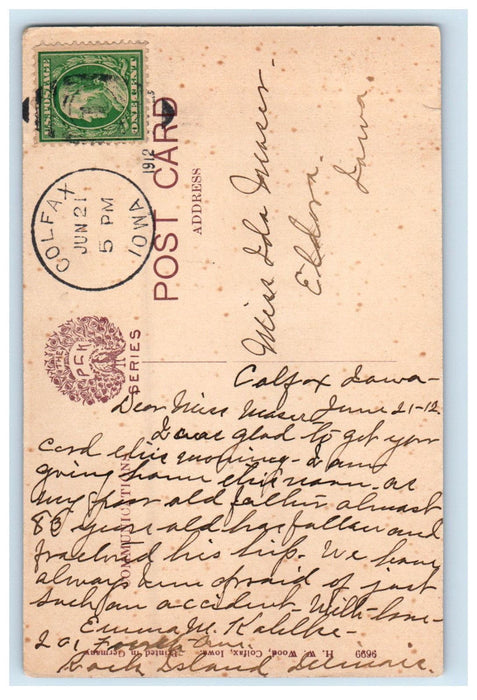 U.S. POSTAGE
ONE CENT
COLFAX
JUN 21
5 PM
1912
IOWA
POST CARD
ADDRESS
Miss Ida Maser.
Eldora.
Iowa
THE
P.F.K
SERIES
COMMUNICATION
Colfax Iowa-
Dear Miss Maser June 21-12
I was glad to get your
card this morning - I am
going home this noon. as
my poor old father almost
83 years old has fallen and
fractured his hip. We have
always been afraid of just
such an accident. With love-
Emma M. Kahlke-
Rock Island Illinois.
9699 H. W. Wood, Colfax, Iowa. Printed in Germany